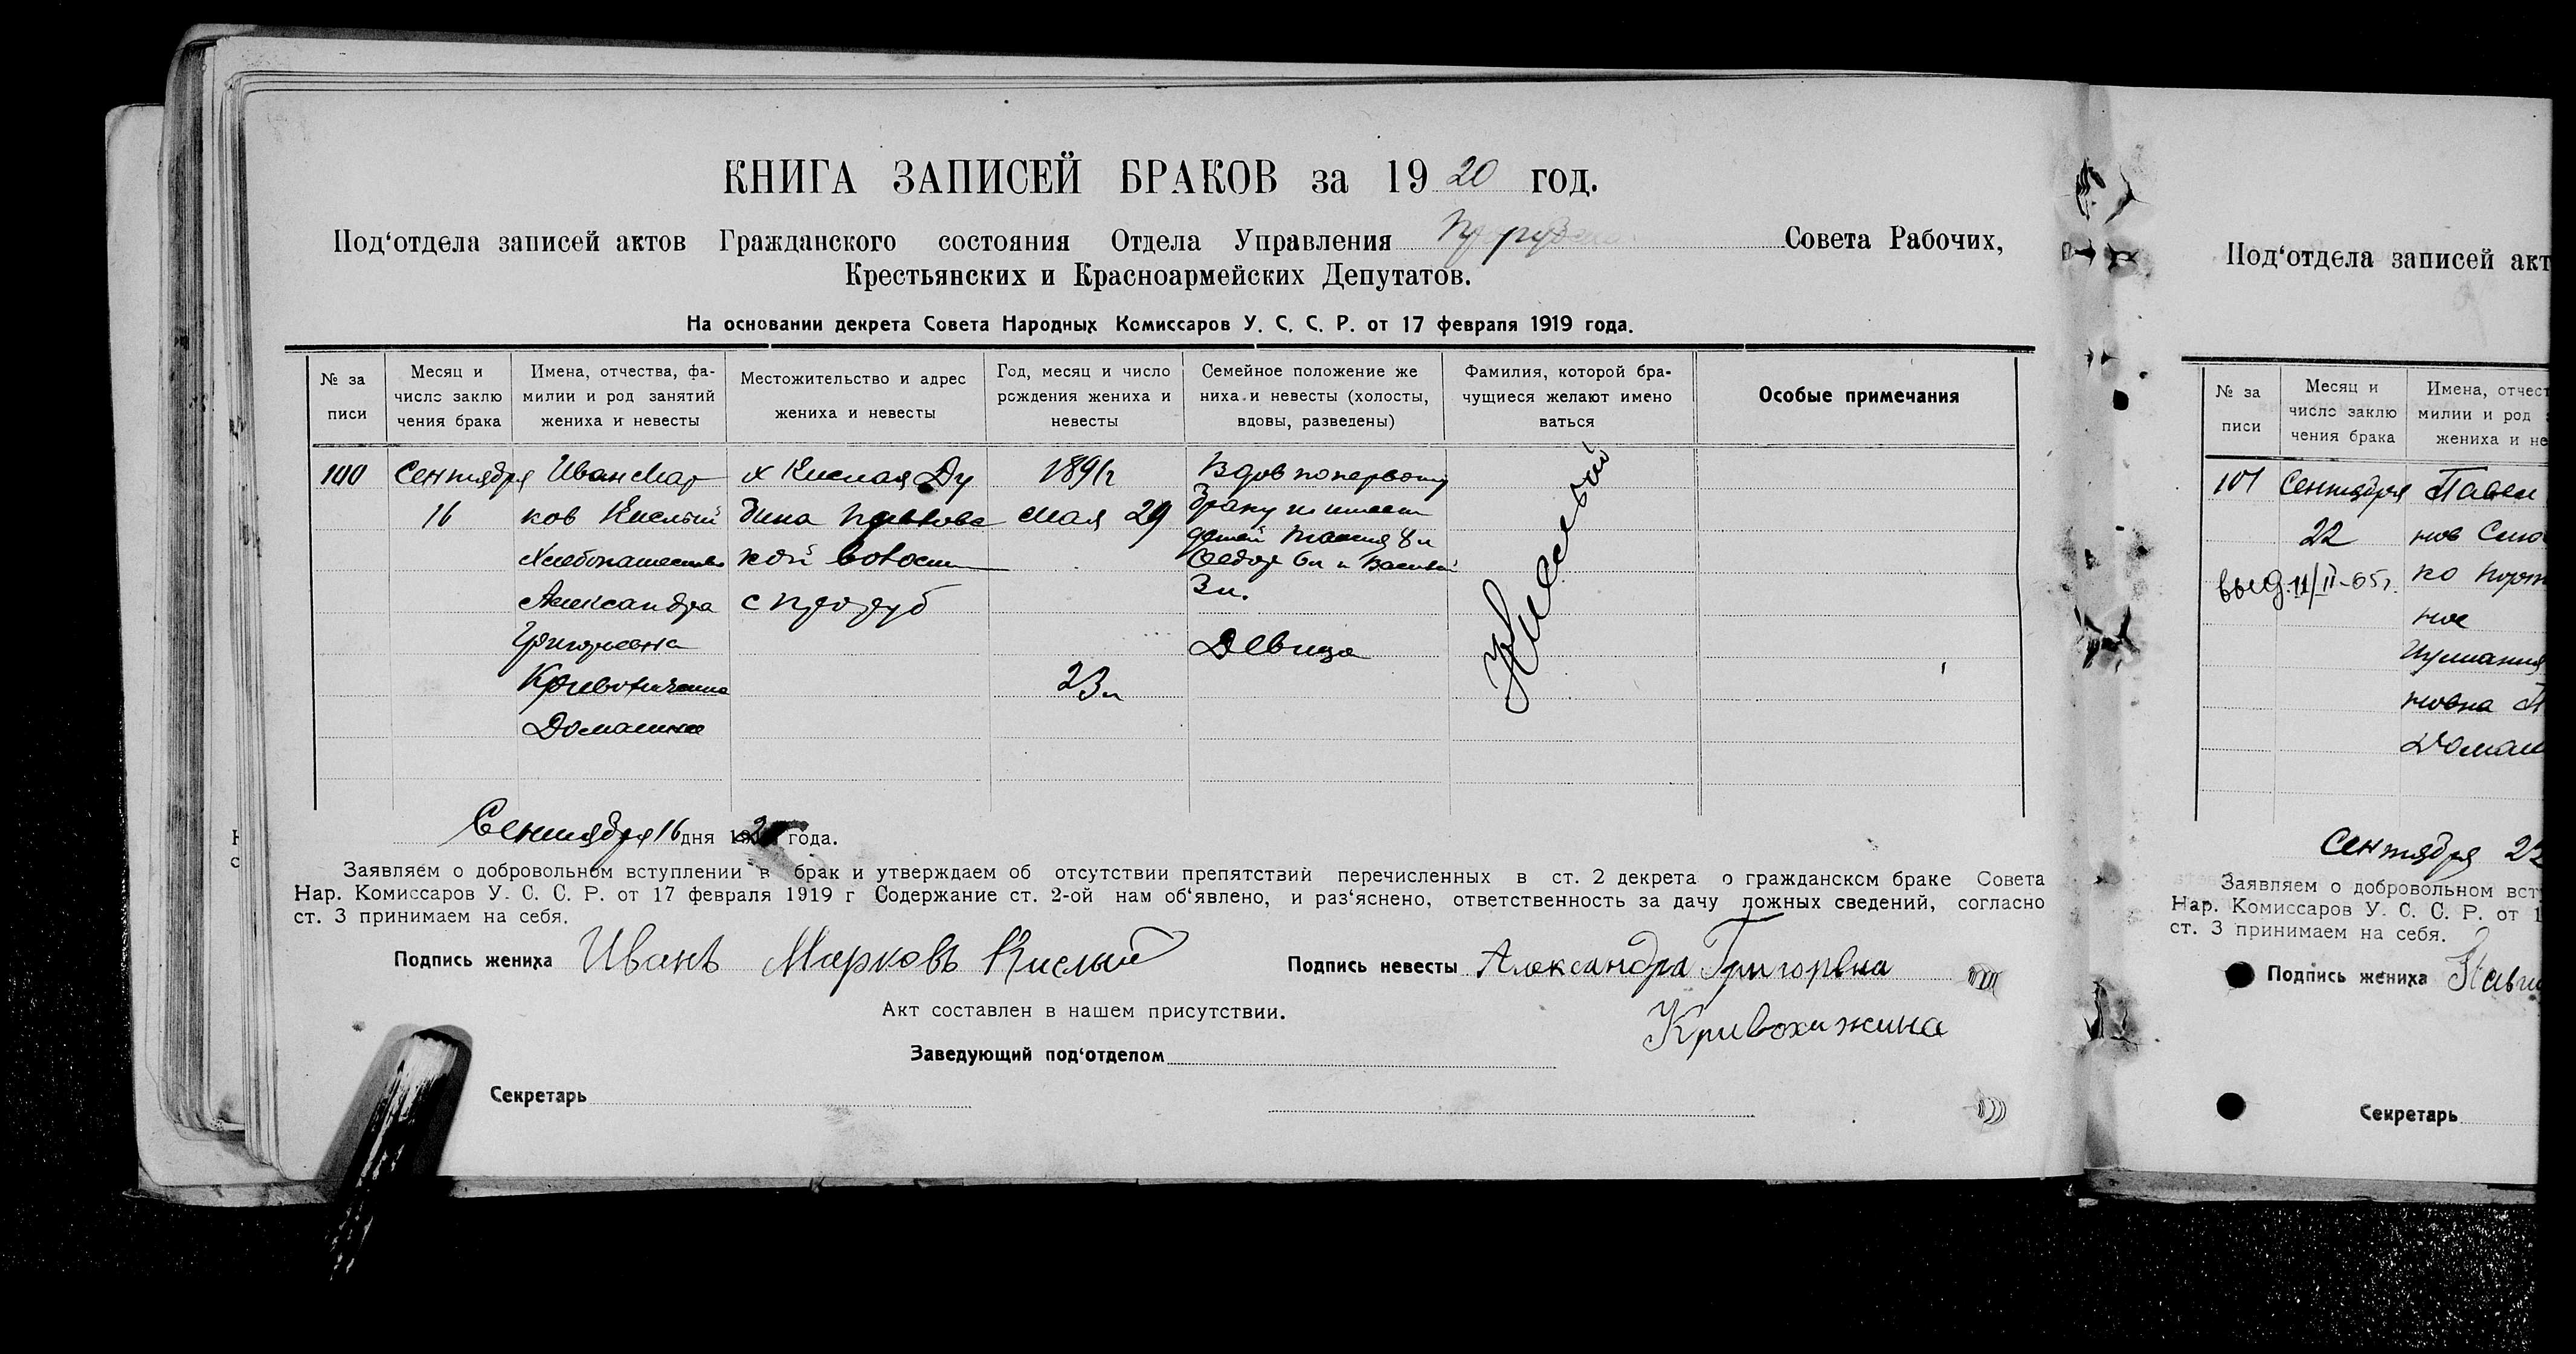 КНИГА ЗАПИСЕЙ БРАКОВ за 1920 год.
Под‘отдела записей актов Гражданского состояния Отдела Управления Совета Рабочих,
Крестьянских и Красноармейских Депутатов.
На основании декрета Совета Народных Комиссаров У. С. С. Р. от 17 февраля 1919 года.
№ за писи
Месяц и число заклю чения брака
Имена, отчества, фа- милии и род занятий жениха и невесты
Местожительство и адрес жениха и невесты
Год, месяц и число рождения жениха и невесты
Семейное положение же ниха и невесты (холосты, вдовы, разведены)
Фамилия, которой бра- чущиеся желают имено ваться
Особые примечания
100
Сентября
16
Иван Мар
ков Кислый
Хлебопашество
Александра
Григорьевна
Домашнее
х Кислая Ду
бина
кой волости
с
1891г
Мая 29
23 л
Вдов по первому
браку
детей 8 л
Федор 6 л и Василий
3 л.
Девица
Кислый
Сентября 16 дня года.
Заявляем о добровольном вступлении в брак и утверждаем об отсутствии препятствий перечисленных в ст. 2 декрета о гражданском браке Совета
Нар. Комиссаров У. С. С. Р. от 17 февраля 1919 г Содержание ст. 2-ой нам об‘явлено, и раз‘яснено, ответственность за дачу ложных сведений, согласно
ст. 3 принимаем на себя.
Подпись жениха Иванъ Марковъ Кислый
Подпись невесты Александра Григорвна
Кривохижина
Акт составлен в нашем присутствии.
Заведующий под‘отделом
Секретарь
Под‘отдела записей акт
№ за писи
Месяц и число заклю чения брака
Имена, отчест милии и род жениха и не
101
Сентября
22
выд. 11/II-65г.
Павел
нов
ко
ное
новна
Домаш
Сентября 22
Заявляем о добровольном вст
Нар. Комиссаров У. С. С. Р. от 1
ст. 3 принимаем на себя.
Подпись жениха
Секретарь